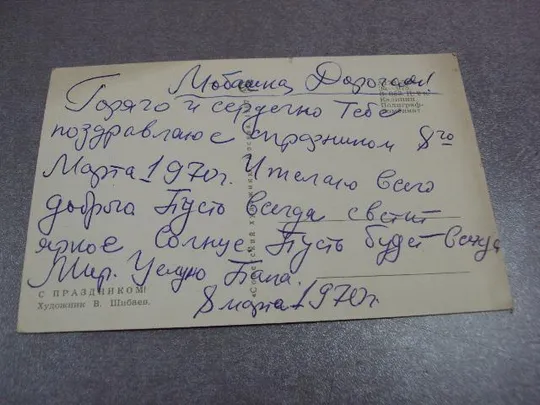 Дорогая!
Горячо и сердечно Тебя
поздравляю с праздником 8го
Марта 1970г. И желаю всего
доброго Пусть всегда светит
яркое Солнце Пусть будет всегда
Мир. Целую Папа.
8 марта 1970г.
С ПРАЗДНИКОМ!
Художник В. Шибаев.
Калинин
Полиграф-
комбинат
«Советский художник»